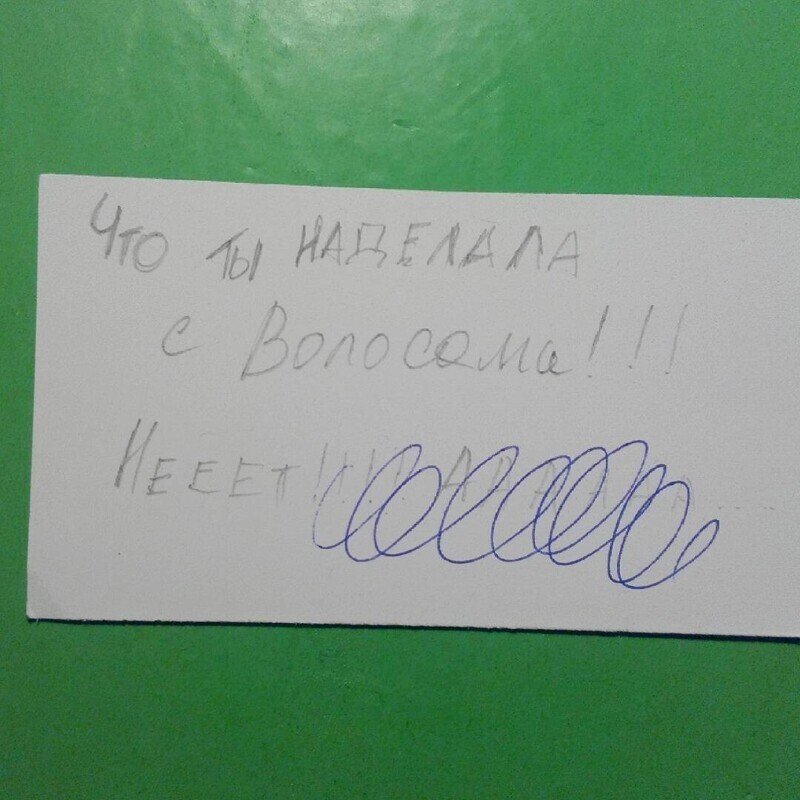 Что ты НАДЕЛАЛА
с Волосами!!!
Нееет!!!! ААААААА....